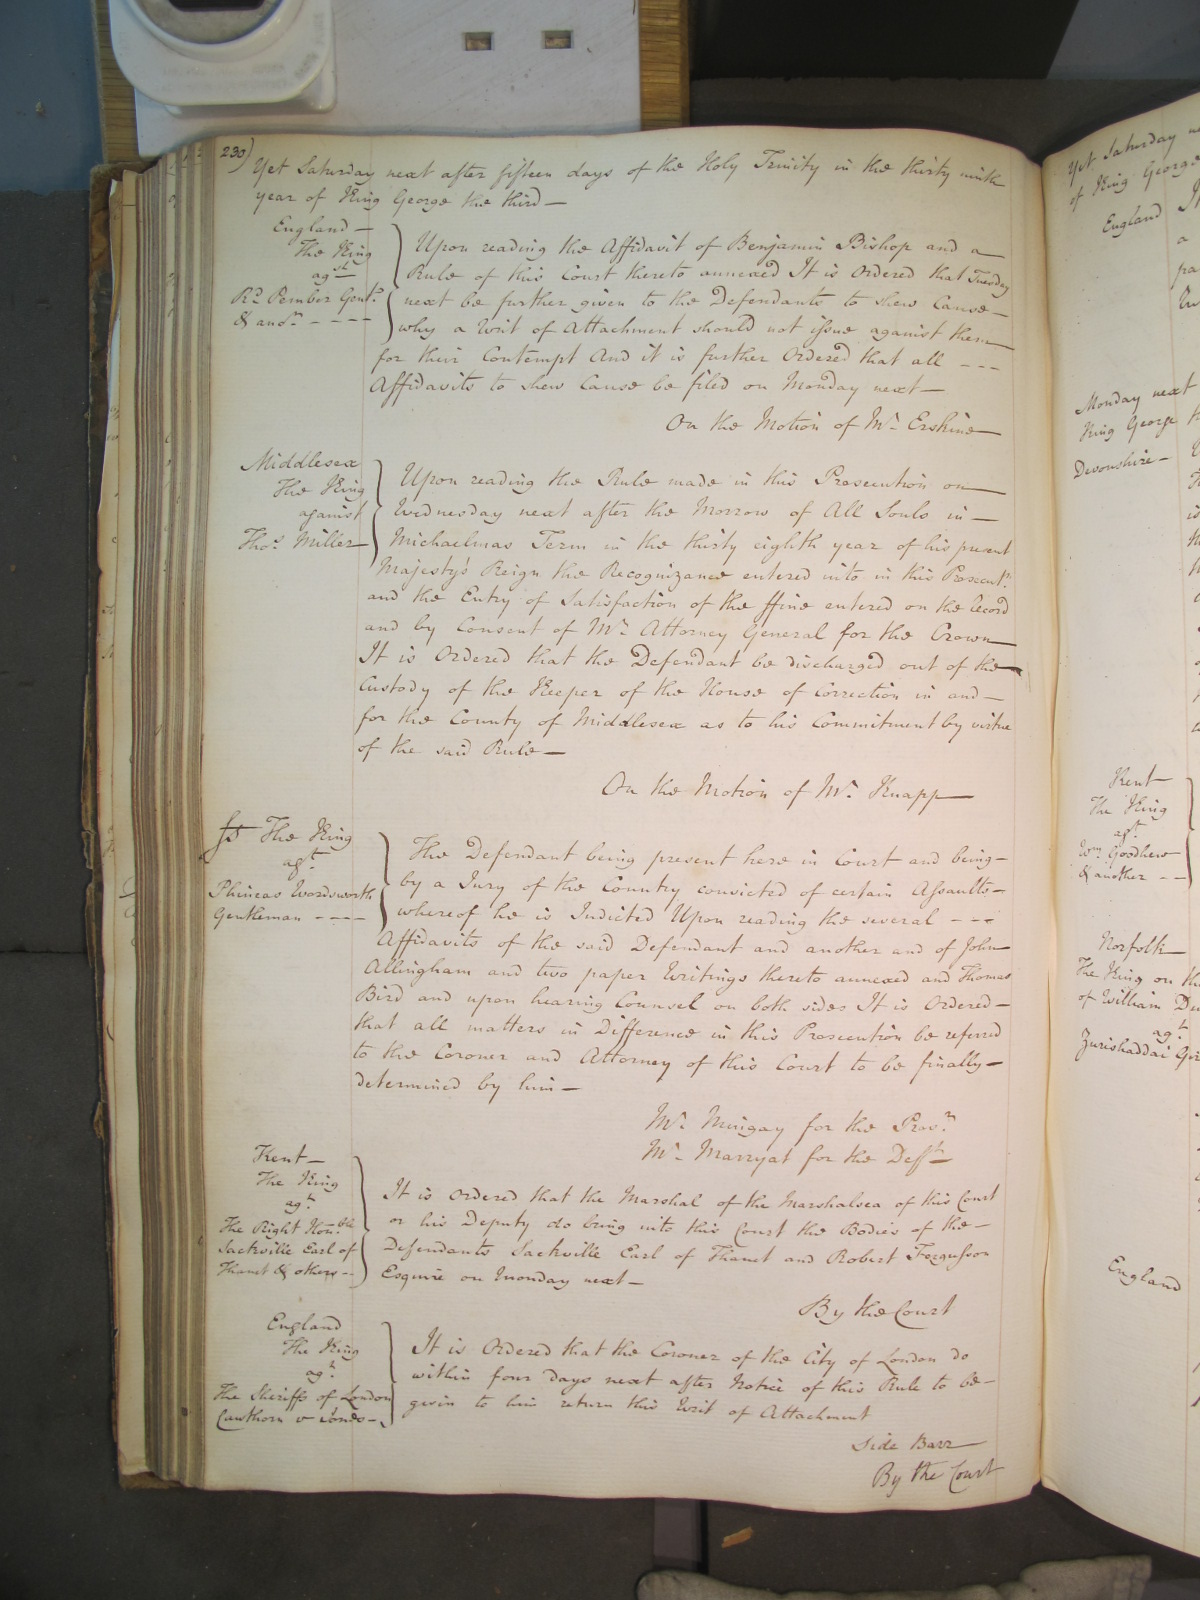 230)
Yet Saturday next after fifteen days of the Holy Trinity in the thirty ninth
year of King George the third—
England—
The King
agst
Rd. Pember Gent.
& anor. - - - -
Upon reading the Affidavit of Benjamin Bishop and a
Rule of this Court thereto annexed It is Ordered that Tuesday
next be further given to the Defendants to shew Cause—
why a Writ of Attachment should not issue against them
for their Contempt And it is further Ordered that all - - -
Affidavits to shew Cause be filed on Monday next—
On the Motion of Mr. Erskine
Middlesex
The King
against
Thos. Miller
Upon reading the Rule made in this Prosecution on
Wednesday next after the Morrow of All Souls in—
Michaelmas Term in the thirty eighth year of his present
Majesty's Reign the Recognizance entered into in this Prosecutn.
and the Entry of Satisfaction of the ffine entered on the Record
and by Consent of Mr. Attorney General for the Crown
It is Ordered that the Defendant be discharged out of the
Custody of the Keeper of the House of Correction in and—
for the County of Middlesex as to his Commitment by virtue
of the said Rule—
On the Motion of Mr. Knapp
The King
agt.
Phineas Wordsworth
Gentleman - - - -
The Defendant being present here in Court and being—
by a Jury of the Country convicted of certain Assaults—
whereof he is Indicted Upon reading the several - - -
Affidavits of the said Defendant and another and of John
Allingham and two paper Writings thereto annexed and Thomas
Bird and upon hearing Counsel on both sides It is Ordered—
that all matters in Difference in this Prosecution be referred
to the Coroner and Attorney of this Court to be finally—
determined by him—
Mr. Mingay for the Prosr.
Mr. Marryat for the Deft.
Kent—
The King
agt.
The Right Honble.
Sackville Earl of
Thanet & others - -
It is Ordered that the Marshal of the Marshalsea of this Court
or his Deputy do bring into this Court the Bodies of the—
Defendants Sackville Earl of Thanet and Robert Fergusson
Esquire on Monday next—
By the Court
England
The King
agt.
The Sheriffs of London
Cawthorn v Jones—
It is Ordered that the Coroner of the City of London do
within four days next after Notice of this Rule to be—
given to him return this Writ of Attachment
Side Barr
By the Court
Yet Saturday
of King George
England
Monday next
King George
Devonshire—
Kent
The King
agt.
Wm. Goodhew
& another - -
Norfolk
The King on
of William
agt.
Zurishaddai
England